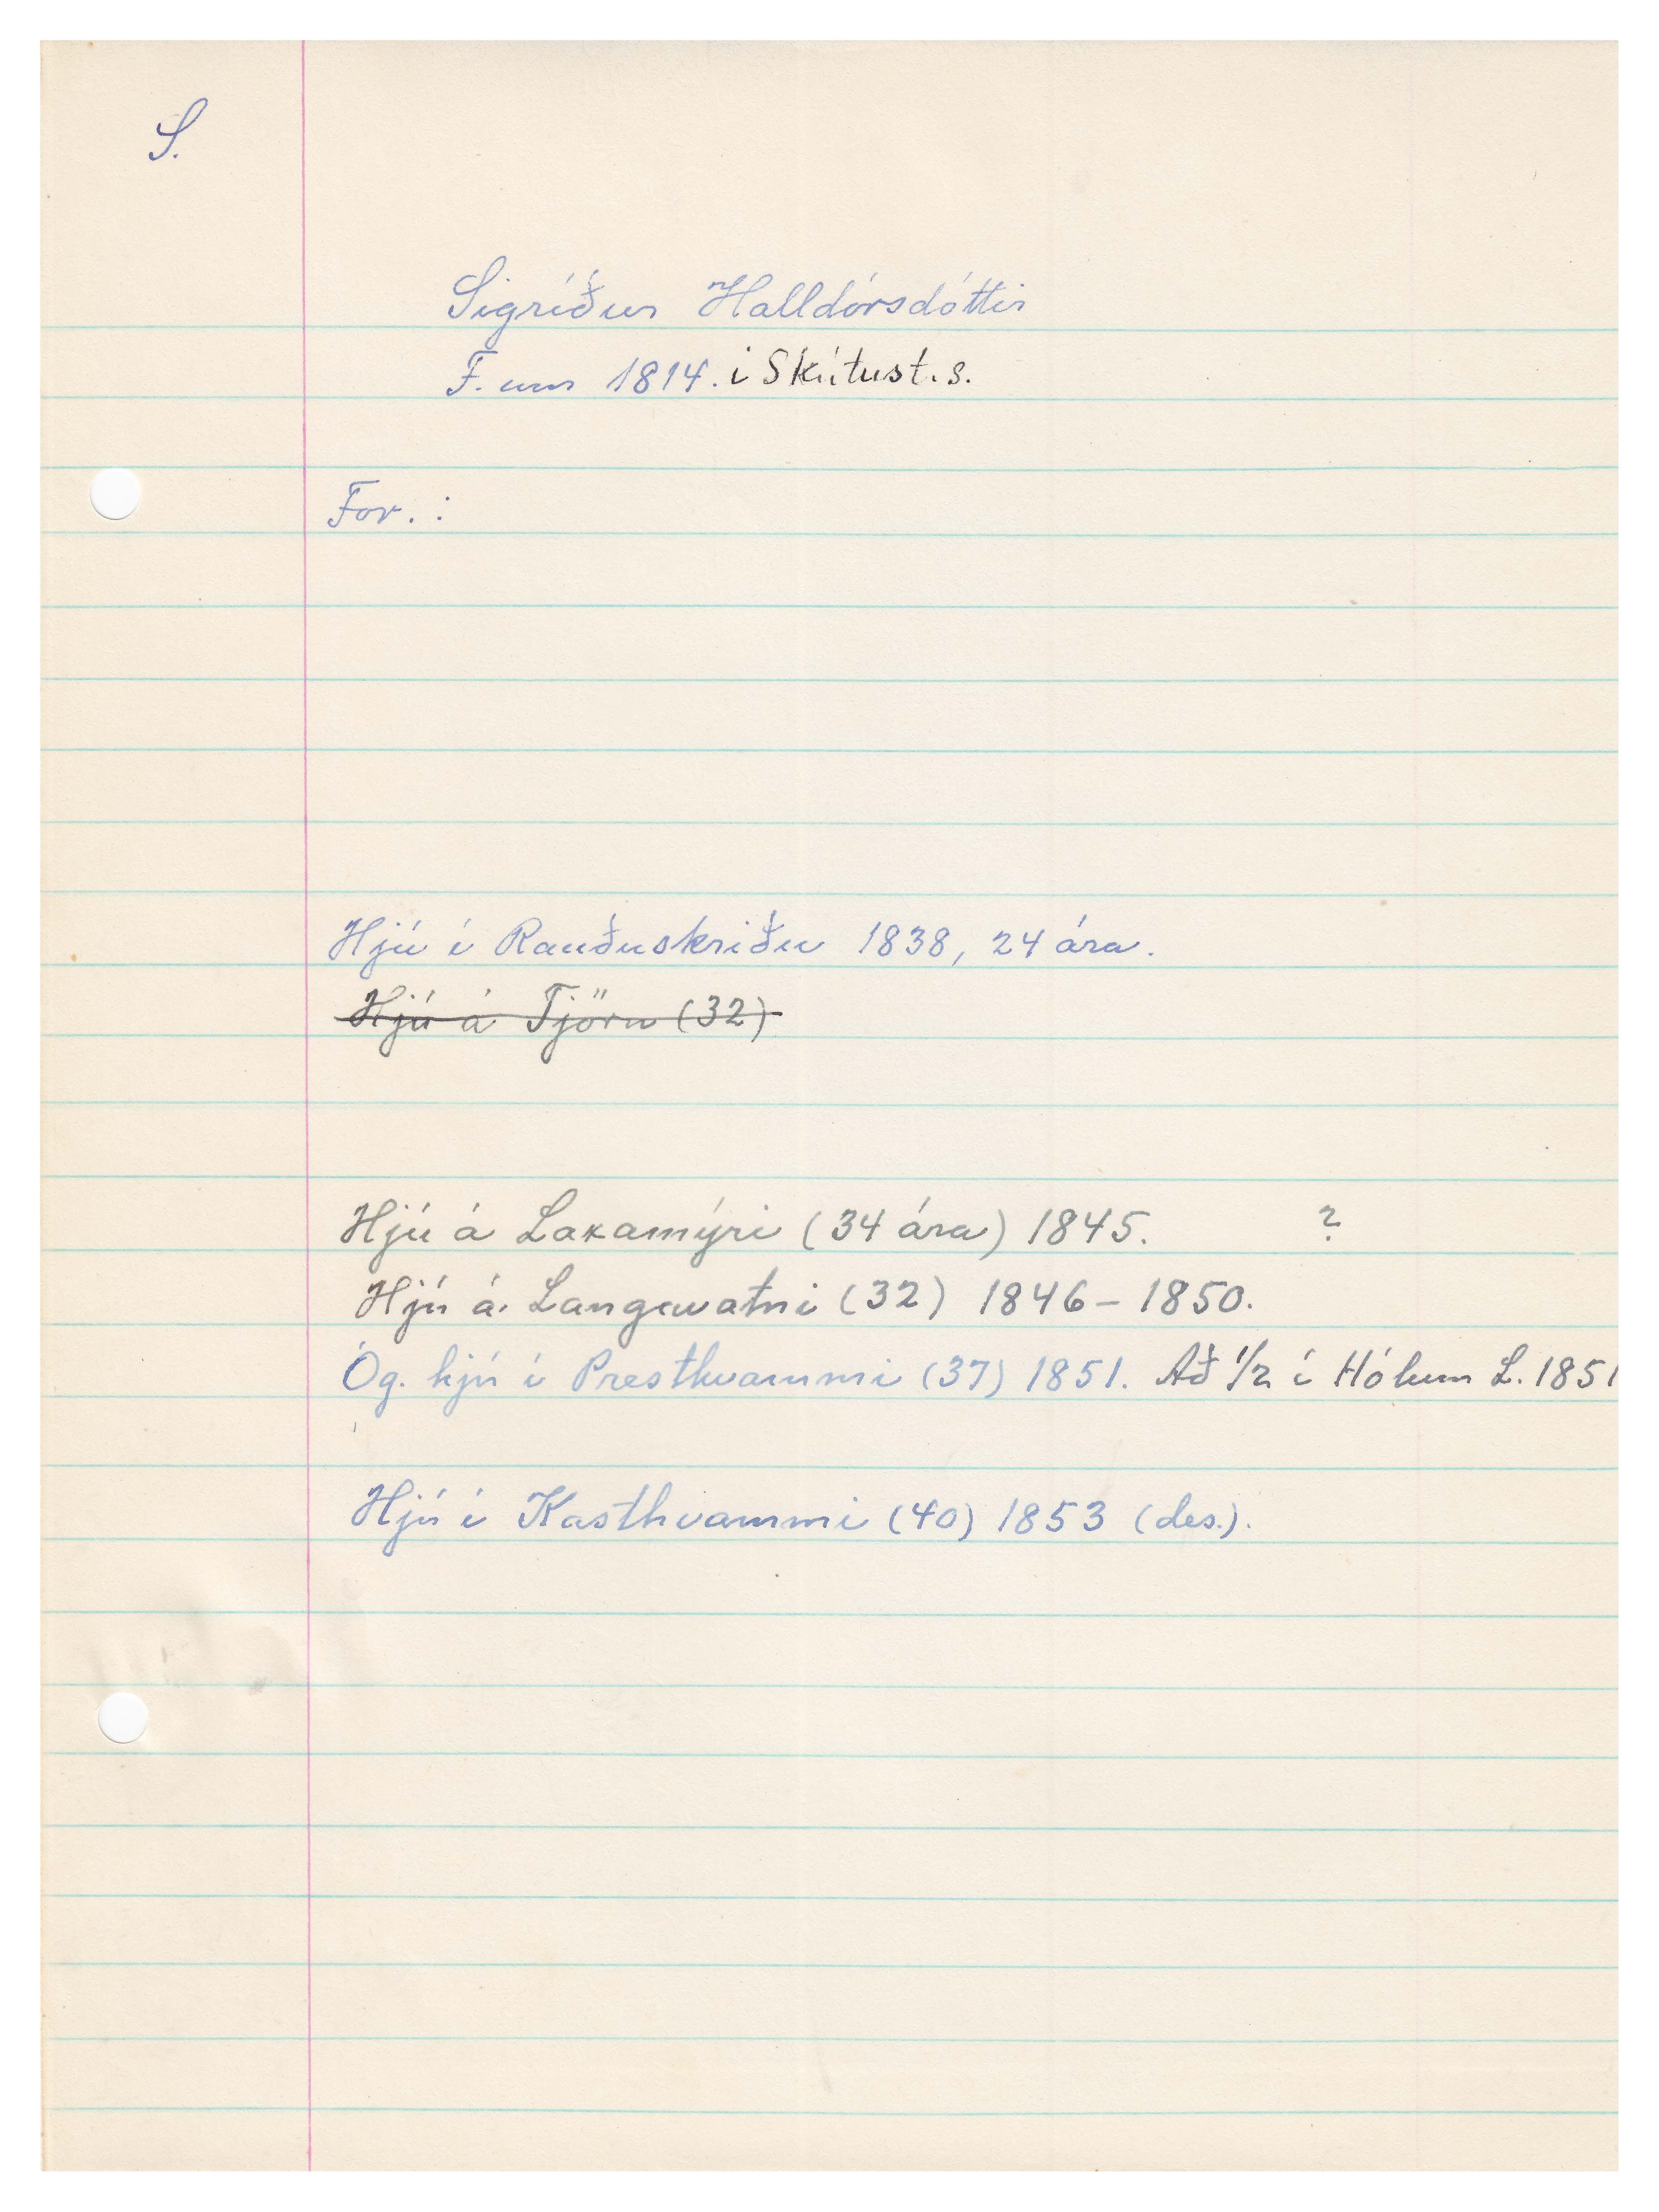 S.
Sigríður Halldórsdóttir
F. um 1814. í Skútust.s.
For. :
Hjú í Rauðuskriðu 1838, 24 ára.
Hjú á Tjörn (32)
Hjú á Laxamýri (34 ára) 1845. ?
Hjú á Langavatni (32) 1846 – 1850.
Óg. hjú í Presthvammi (37) 1851. Að 1/2 í Hólum L. 1851
Hjú í Kasthvammi (40) 1853 (des.).